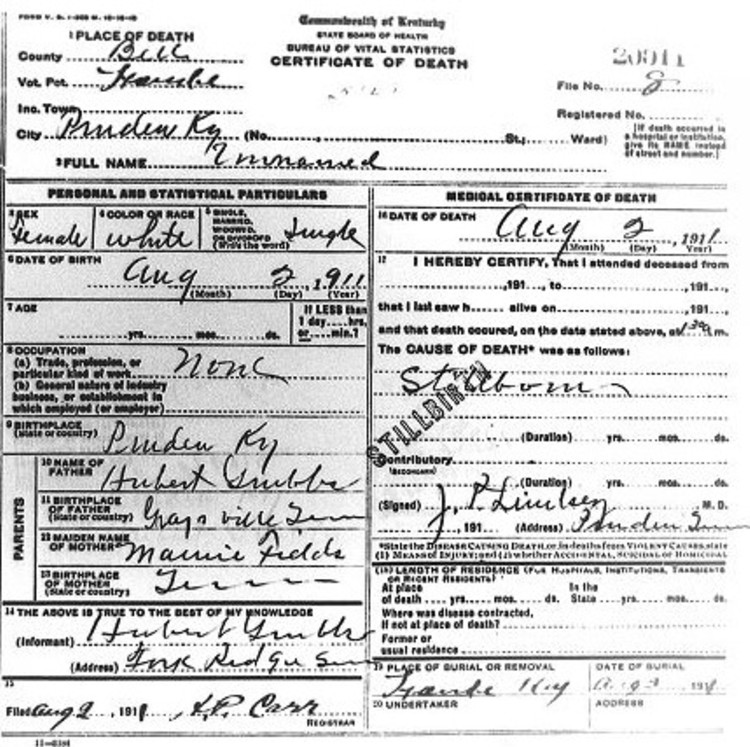 FORM V. S.
Commonwealth of Kentucky
STATE BOARD OF HEALTH
BUREAU OF VITAL STATISTICS
CERTIFICATE OF DEATH
1 PLACE OF DEATH
County Bell
Vot. Pct.
Inc. Town
City Pruden Ky (No. , St.; Ward)
20911
File No. 8
Registered No.
[If death occurred in
a hospital or institution,
give its NAME instead
of street and number.]
2 FULL NAME Unnamed
PERSONAL AND STATISTICAL PARTICULARS
3 SEX
Female
4 COLOR OR RACE
white
5 SINGLE,
MARRIED,
WIDOWED,
OR DIVORCED
(Write the word)
Single
6 DATE OF BIRTH
Aug 2, 1911
(Month) (Day) (Year)
7 AGE
yrs. mos. ds.
If LESS than
1 day....hrs.
or....min.?
8 OCCUPATION
(a) Trade, profession, or
particular kind of work None
(b) General nature of industry
business, or establishment in
which employed (or employer)
9 BIRTHPLACE
(State or country) Pruden Ky
PARENTS
10 NAME OF
FATHER Hubert Grubbs
11 BIRTHPLACE
OF FATHER
(State or country) Graysville Tenn
12 MAIDEN NAME
OF MOTHER Mamie Fields
13 BIRTHPLACE
OF MOTHER
(State or country) Tenn
14 THE ABOVE IS TRUE TO THE BEST OF MY KNOWLEDGE
(Informant) Hubert Grubbs
(Address) Fork Ridge Tenn
15
Filed Aug 2, 1911 Carr
REGISTRAR
11-3184
MEDICAL CERTIFICATE OF DEATH
16 DATE OF DEATH
Aug 2, 1911
(Month) (Day) (Year)
17 I HEREBY CERTIFY, That I attended deceased from
, 191 , to , 191 ,
that I last saw h alive on , 191 ,
and that death occured, on the date stated above, at 1 30 m.
The CAUSE OF DEATH* was as follows:
Stillborn
STILLBIRTH
(Duration) yrs. mos. ds.
Contributory
(SECONDARY)
(Duration) yrs. mos. ds.
(Signed) J. P. M. D.
, 191 (Address) Pruden Tenn
*State the DISEASE CAUSING DEATH, or in deaths from VIOLENT CAUSES, state
(1) MEANS OF INJURY; and (2) whether ACCIDENTAL, SUICIDAL OR HOMICIDAL
(18) LENGTH OF RESIDENCE (FOR HOSPITALS, INSTITUTIONS, TRANSIENTS
OR RECENT RESIDENTS)
At place In the
of death yrs. mos. ds. State yrs. mos. ds.
Where was disease contracted,
if not at place of death?
Former or
usual residence
19 PLACE OF BURIAL OR REMOVAL
Ky
DATE OF BURIAL
Aug 2 1911
20 UNDERTAKER
ADDRESS